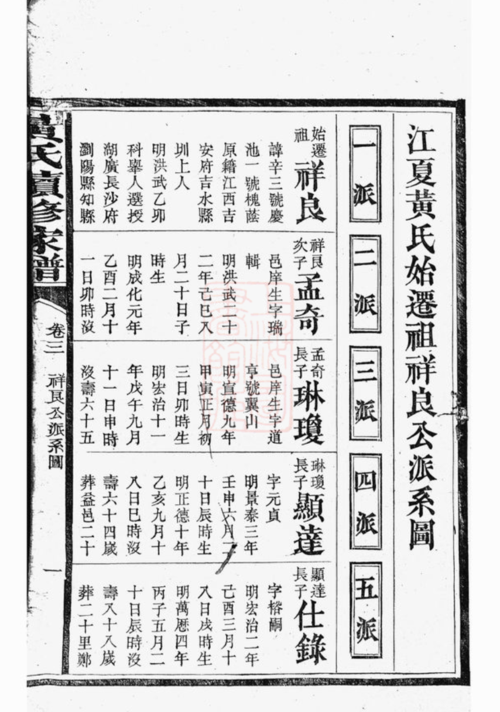 江夏黃氏始遷祖祥良公派系圖
一派
二派
三派
四派
五派
始遷祖
祥良
諱辛三號慶
池一號槐蔭
原籍江西吉
安府吉水縣
圳上人
明洪武乙卯
科舉人選授
湖廣長沙府
瀏陽縣知縣
祥良次子
孟奇
邑庠生字瑞
輯
明洪武十
二年己巳八
月二十日子
時生
明成化元年
乙酉二月十
一日卯時沒
孟奇長子
琳瓊
邑庠生字道
亨號翼山
明宣德九年
甲寅正月初
三日卯時生
明宏治十一
年戊午九月
十一日申時
沒壽六十五
琳瓊長子
顯達
字元貞
明景泰三年
壬申六月二
十日辰時生
明正德十年
乙亥九月十
八日巳時沒
壽六十四歲
葬益邑二十
顯達長子
仕錄
字榕嗣
明宏治二年
己酉三月十
八日戌時生
明萬曆四年
丙子五月二
十日辰時沒
壽八十八歲
葬二十里鄭
黃氏續修家譜
卷三
祥良公派系圖
一